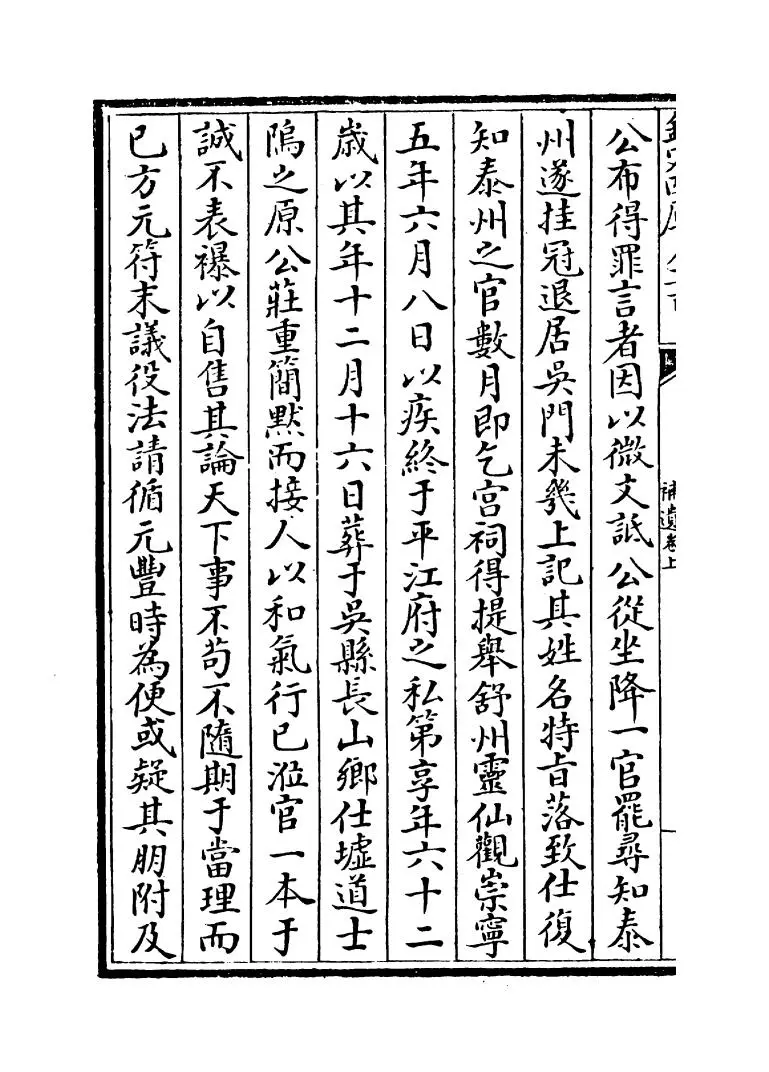 補遺卷上
公布得罪言者因以微文詆公從坐降一官罷尋知泰
州遂挂冠退居吳門未幾上記其姓名特㫖落致仕復
知泰州之官數月即乞宫祠得提舉舒州靈仙觀崇寧
五年六月八日以疾終于平江府之私第享年六十二
歲以其年十二月十六日葬于吳縣長山鄉仕墟道士
隝之原公莊重簡黙而接人以和氣行已涖官一本于
誠不表襮以自售其論天下事不茍不隨期于當理而
已方元符末議役法請循元豐時為便或疑其朋附及